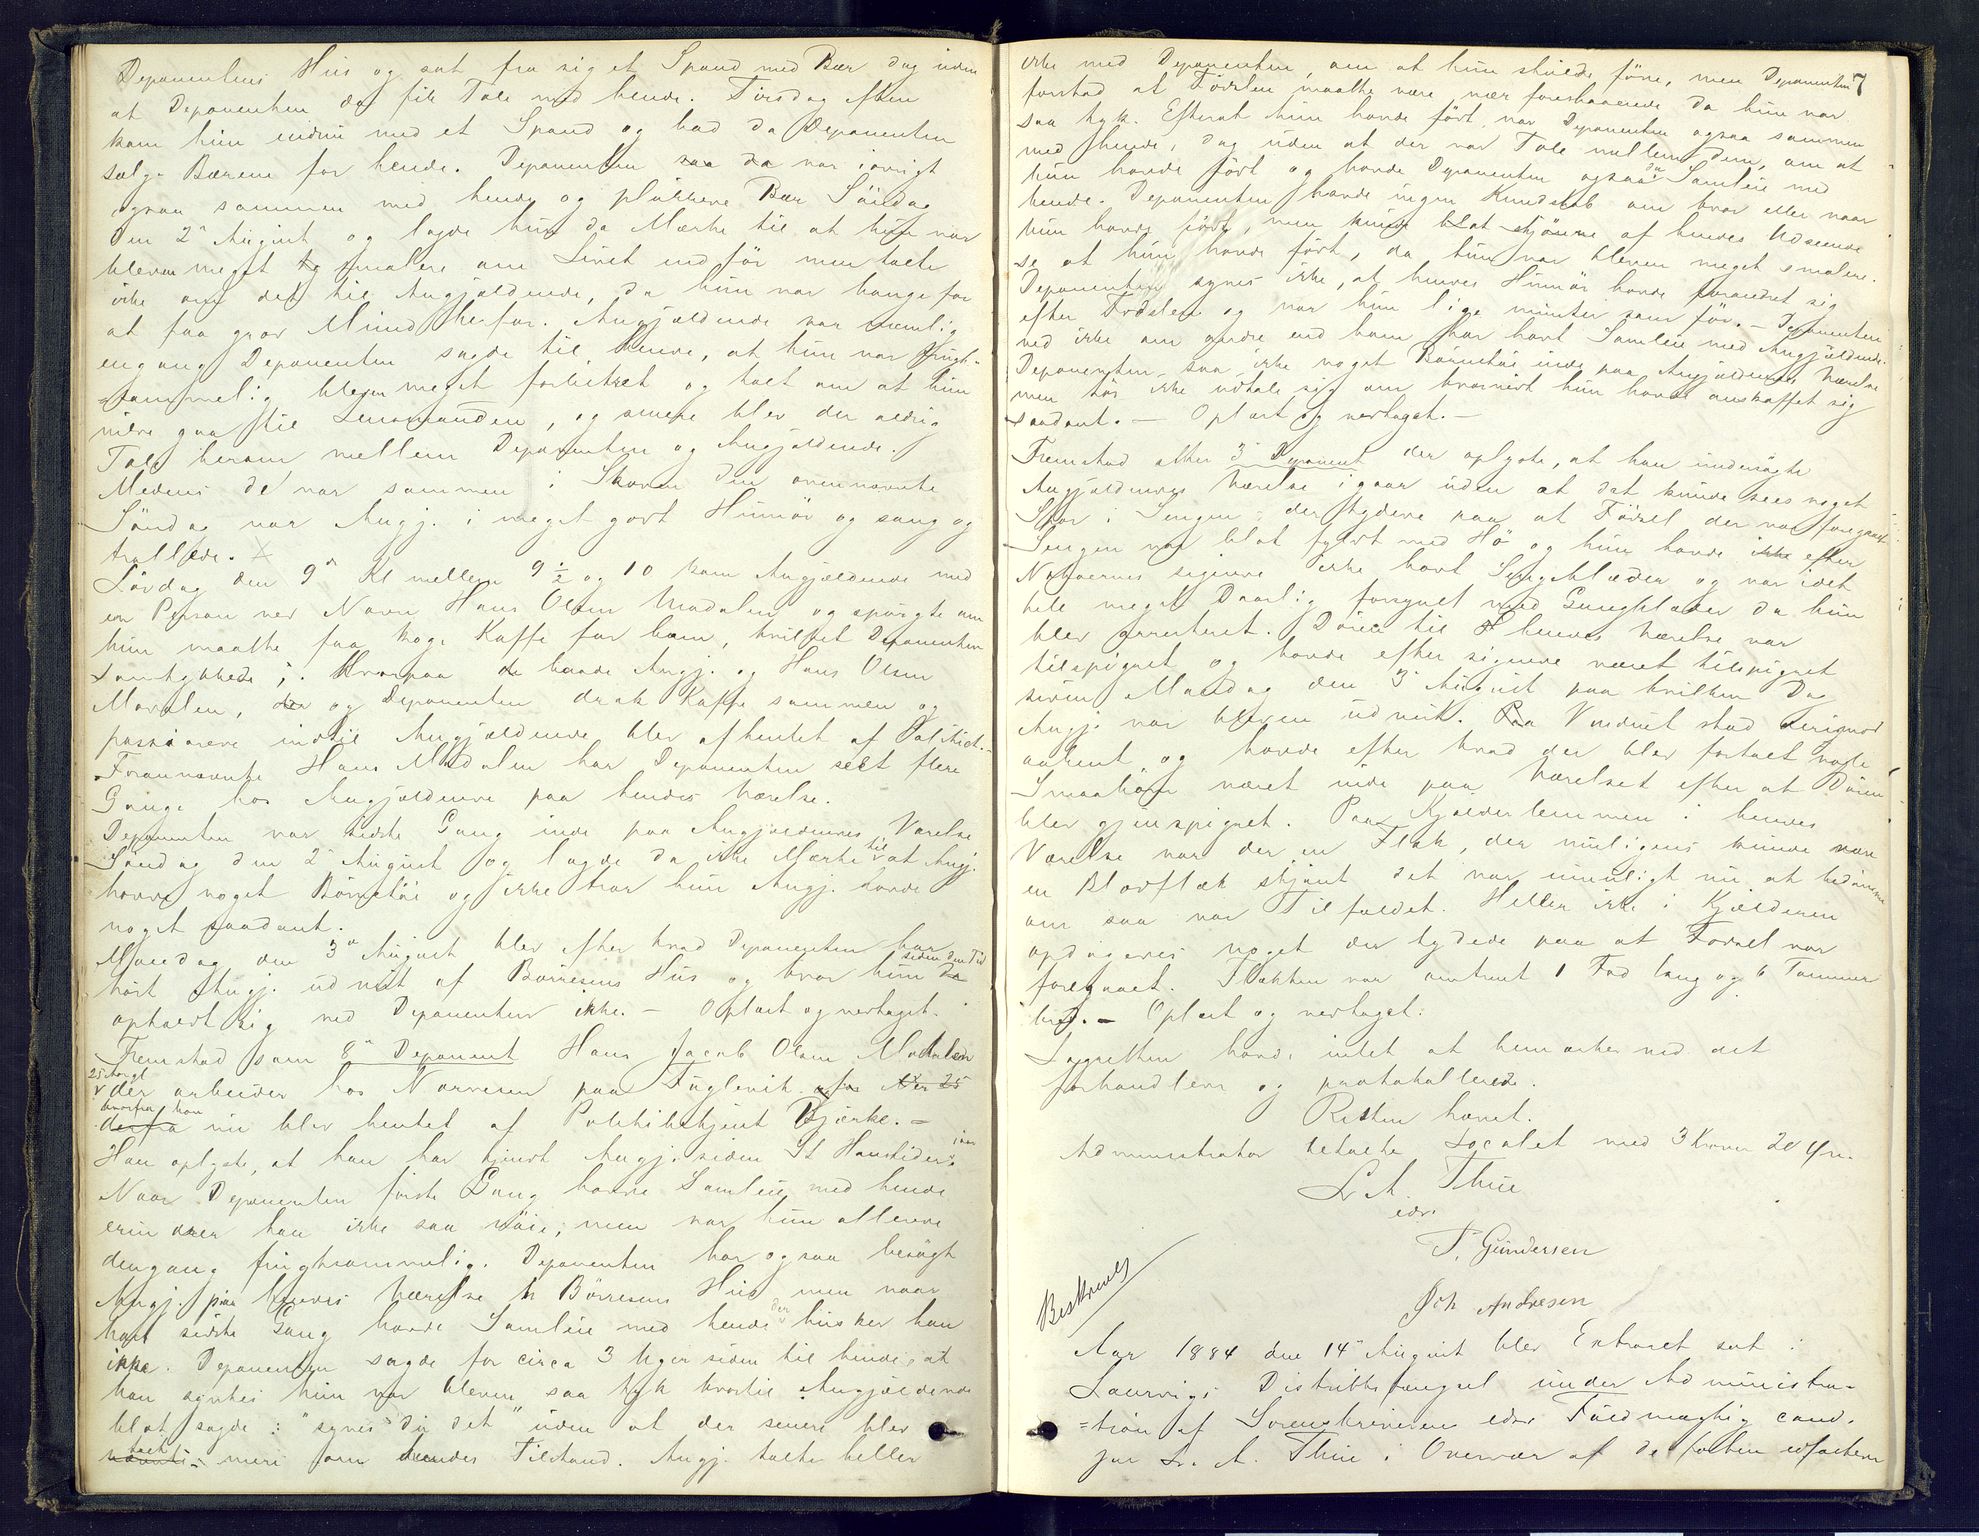 Deponentens Hus og sat fra sig et Spand med Bær dog uden
at Deponenten da fik Tale med hende. Tirsdag Aften
kom hun endnu med et Spand og bad da Deponenten
sælge Bærene for hende. Deponenten saa da var iøvrigt
ogsaa sammen med hende og plukkede Bær Søndag
den 2den August og lagde hun da Mærke til at hun var
bleven meget smalere om Livet end før men talte
ikke om det til Angjældende, da hun var bange for
at faa grov Mund herfor. Angjældende var nemlig
engang Deponenten sagde til hende, at hun var frugt-
sommelig bleven meget forbitret og talt om at hun
vilde gaa til Lensmanden, og senere blev der aldrig
Tale herom mellem Deponenten og Angjældende.
Medens de var sammen i Skoven den ovennævnte
Søndag var Angj. i meget godt Humør og sang og
trallede.
Lørdag den 9de Kl mellem 9 1/2 og 10 kom Angjældende med
en Person ved Navn Hans Olsen Modalen og spurgte om
hun maatte faa koge Kaffe for ham, hvilket Deponenten
samtykkede i. Hvorpaa de baade Angj. og Hans Olsen
Modalen, og Deponenten drak Kaffe sammen og
passiarede indtil Angjældende blev afhentet af Politiet.
Forannævnte Hans Modalen har Deponenten seet flere
Gange hos Angjældende paa hendes Værelse.
Deponenten var sidste Gang inde paa Angjældendes Værelse
Søndag den 2den August og lagde da ikke Mærke til at Angj.
havde noget Børnetøi og ikke tror hun Angj. havde
noget saadant.
Mandag den 3die August blev efter hvad Deponenten har
hørt Angj. udvist af Børresens Hus og hvor hun siden den Tid
opholdt sig ved Deponenten ikke. — Oplæst og vedtaget.
Fremstod som 8de Deponent Hans Jacob Olsen Modalen
25 Aar gl
der arbeider hos Narvesen paa Fuglevik
hvorfra han
derfra nu blev hentet af Politibetjent Bjerke. —
Han oplyste, at han har kjendt Angj. siden St Hanstider iaar
Naar Deponenten første Gang havde Samleie med hende
erindrer han ikke saa nøie, men var hun allerede
dengang frugtsommelig. Deponenten har ogsaa besøgt
Angj. paa hendes Værelse i Børresens Hus men naar
han sidste Gang havde Samleie med hende der husker han
ikke. Deponenten sagde for circa 3 Uger siden til hende, at
han syntes hun var bleven saa tyk hvortil Angjældende
blot sagde: "synes du det" uden at der senere blev
talt
nævnt mere om hendes Tilstand. Angj. talte heller
7
ikke med Deponenten, om at hun skulde føde, men Deponenten
forstod at Fødslen maatte være nær forestaaende da hun var
saa tyk. Efterat hun havde født var Deponenten ogsaa sammen
med hende, dog uden at der var Tale mellem dem, om at
hun havde født og havde Deponenten ogsaa da Samleie med
hende. Deponenten havde ingen Kundskab om hvor eller naar
hun havde født, men kunde blot skjønne af hendes Udseende
se at hun havde født, da hun var bleven meget smalere.
Deponenten synes ikke, at hendes Humør havde forandret sig
efter Fødslen og var hun lige munter som før. — Deponenten
ved ikke om andre end ham har havt Samleie med Angjældende.
Deponenten saa ikke noget Barnetøi inde paa Angjældendes Værelse
men tør ikke udtale sig om hvorvidt hun havde anskaffet sig
saadant. — Oplæst og vedtaget. —
Fremstod atter 3die Deponent der oplyste, at han undersøgte
Angjældendes Værelse igaar uden at det kunde sees noget
Spor i Sengen der tydede paa at Fødsel der var foregaaet.
Sengen var blot fyldt med Hø og hun havde ikke efter
Naboernes sigende ikke havt Sengklæder og var idet
hele meget daarlig forsynet med Gangklæder da hun
blev arresteret. Døren til hendes Værelse var
tilspigret og havde efter sigende været tilspigret
siden Mandag den 3die August paa hvilken Dag
Angj. var bleven udvist. Paa Vinduet stod derimod
aabent og havde efter hvad der blev fortalt nogle
Smaabørn været inde paa Værelset efter at Døren
blev gjenspigret. Paa Kjælderlemmen i hendes
Værelse var der en Flæk, der muligens kunde være
en Blodflæk skjønt det var umuligt nu at bedømme
om saa var Tilfældet. Heller ikke i Kjælderen
opdagedes noget der tydede paa at Fødsel var
foregaaet. Flækken var omtrent 1 Fod lang og 6 Tommer
bred. — Oplæst og vedtaget.
Lagretten havde intet at bemærke ved det
forhandlede og protokollerede.
Retten hævet.
Administrator betalte Localet med 3 Kroner 20 Øre.
L. A. Thue
edsv.
T. Gundersen
Joh Andresen
Beskrevet
Aar 1884 den 14de August blev Extraret sat i
Laurvigs Distriktsfængsel under Administra-
tion af Sorenskriverens edsv Fuldmægtig cand.
jur L. A. Thue i Overvær af de forhen edfæstede